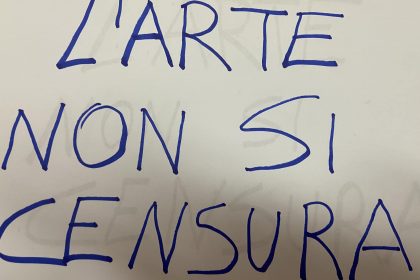 L'ARTE
NON SI
CENSURA